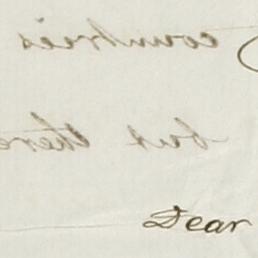 countries
but there
Dear